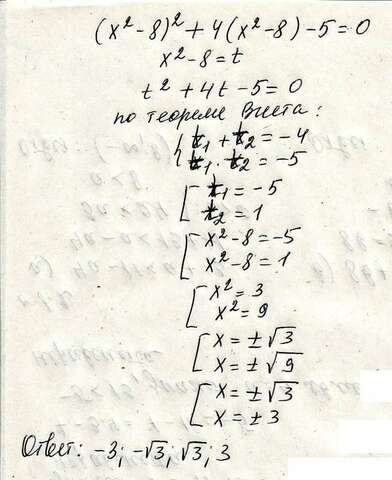 (x²-8)²+4(x²-8)-5=0
x²-8=t
t²+4t-5=0
по теореме Виета:
{ t₁+t₂=-4
t₁·t₂=-5
[ t₁=-5
t₂=1
[ x²-8=-5
x²-8=1
[ x²=3
x²=9
[ x=±√3
x=±√9
[ x=±√3
x=±3
Ответ: -3; -√3; √3; 3